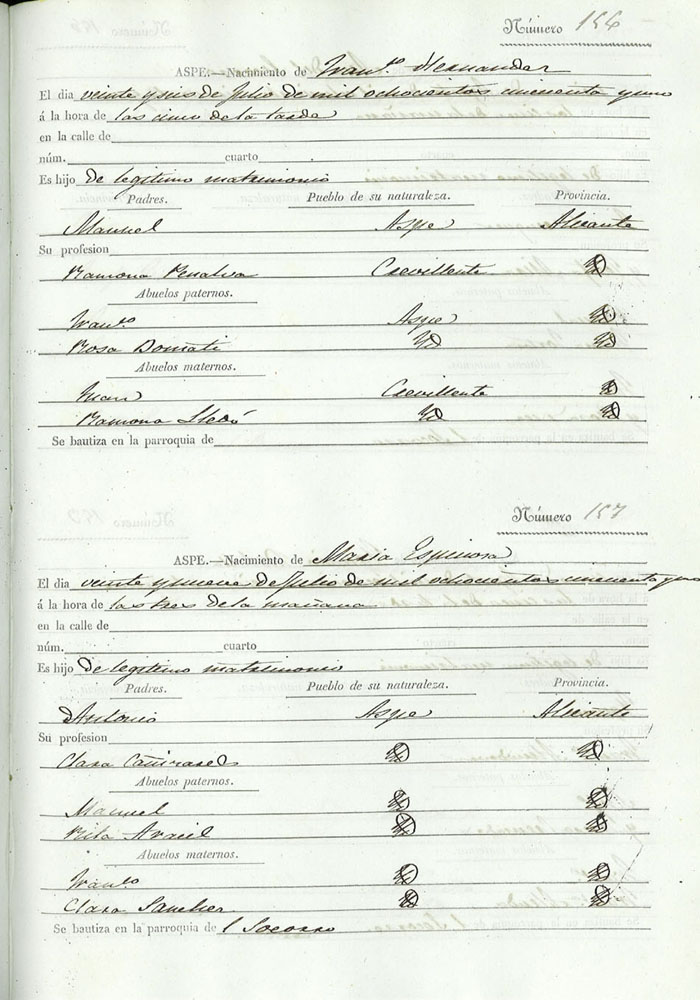 Número 156
ASPE.—Nacimiento de Franco. Hernandez
El dia veinte y seis de Julio de mil ochocientos cincuenta y uno
á la hora de las cinco de la tarde
en la calle de
núm. cuarto
Es hijo de legitimo matrimonio
Padres. Pueblo de su naturaleza. Provincia.
Manuel Aspe Alicante
Su profesion
Ramona Penalva Crevillente Yd
Abuelos paternos.
Franco. Aspe Yd
Rosa Yd Yd
Abuelos maternos.
Juan Crevillente Yd
Ramona Lledó Yd Yd
Se bautiza en la parroquia de
Número 157
ASPE.—Nacimiento de Maria Espinosa
El dia veinte y nueve de Julio de mil ochocientos cincuenta y uno
á la hora de las tres de la mañana
en la calle de
núm. cuarto
Es hijo de legitimo matrimonio
Padres. Pueblo de su naturaleza. Provincia.
Antonio Aspe Alicante
Su profesion
Clara Cañizares Yd Yd
Abuelos paternos.
Manuel Yd Yd
Rita Aracil Yd Yd
Abuelos maternos.
Franco Yd Yd
Clara Sanchez Yd Yd
Se bautiza en la parroquia de l Socorro